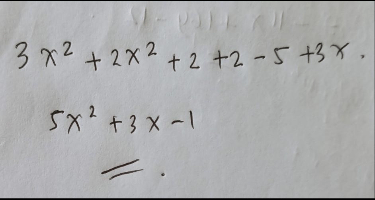 3x² + 2x² + 2 + 2 - 5 + 3x.
5x² + 3x - 1